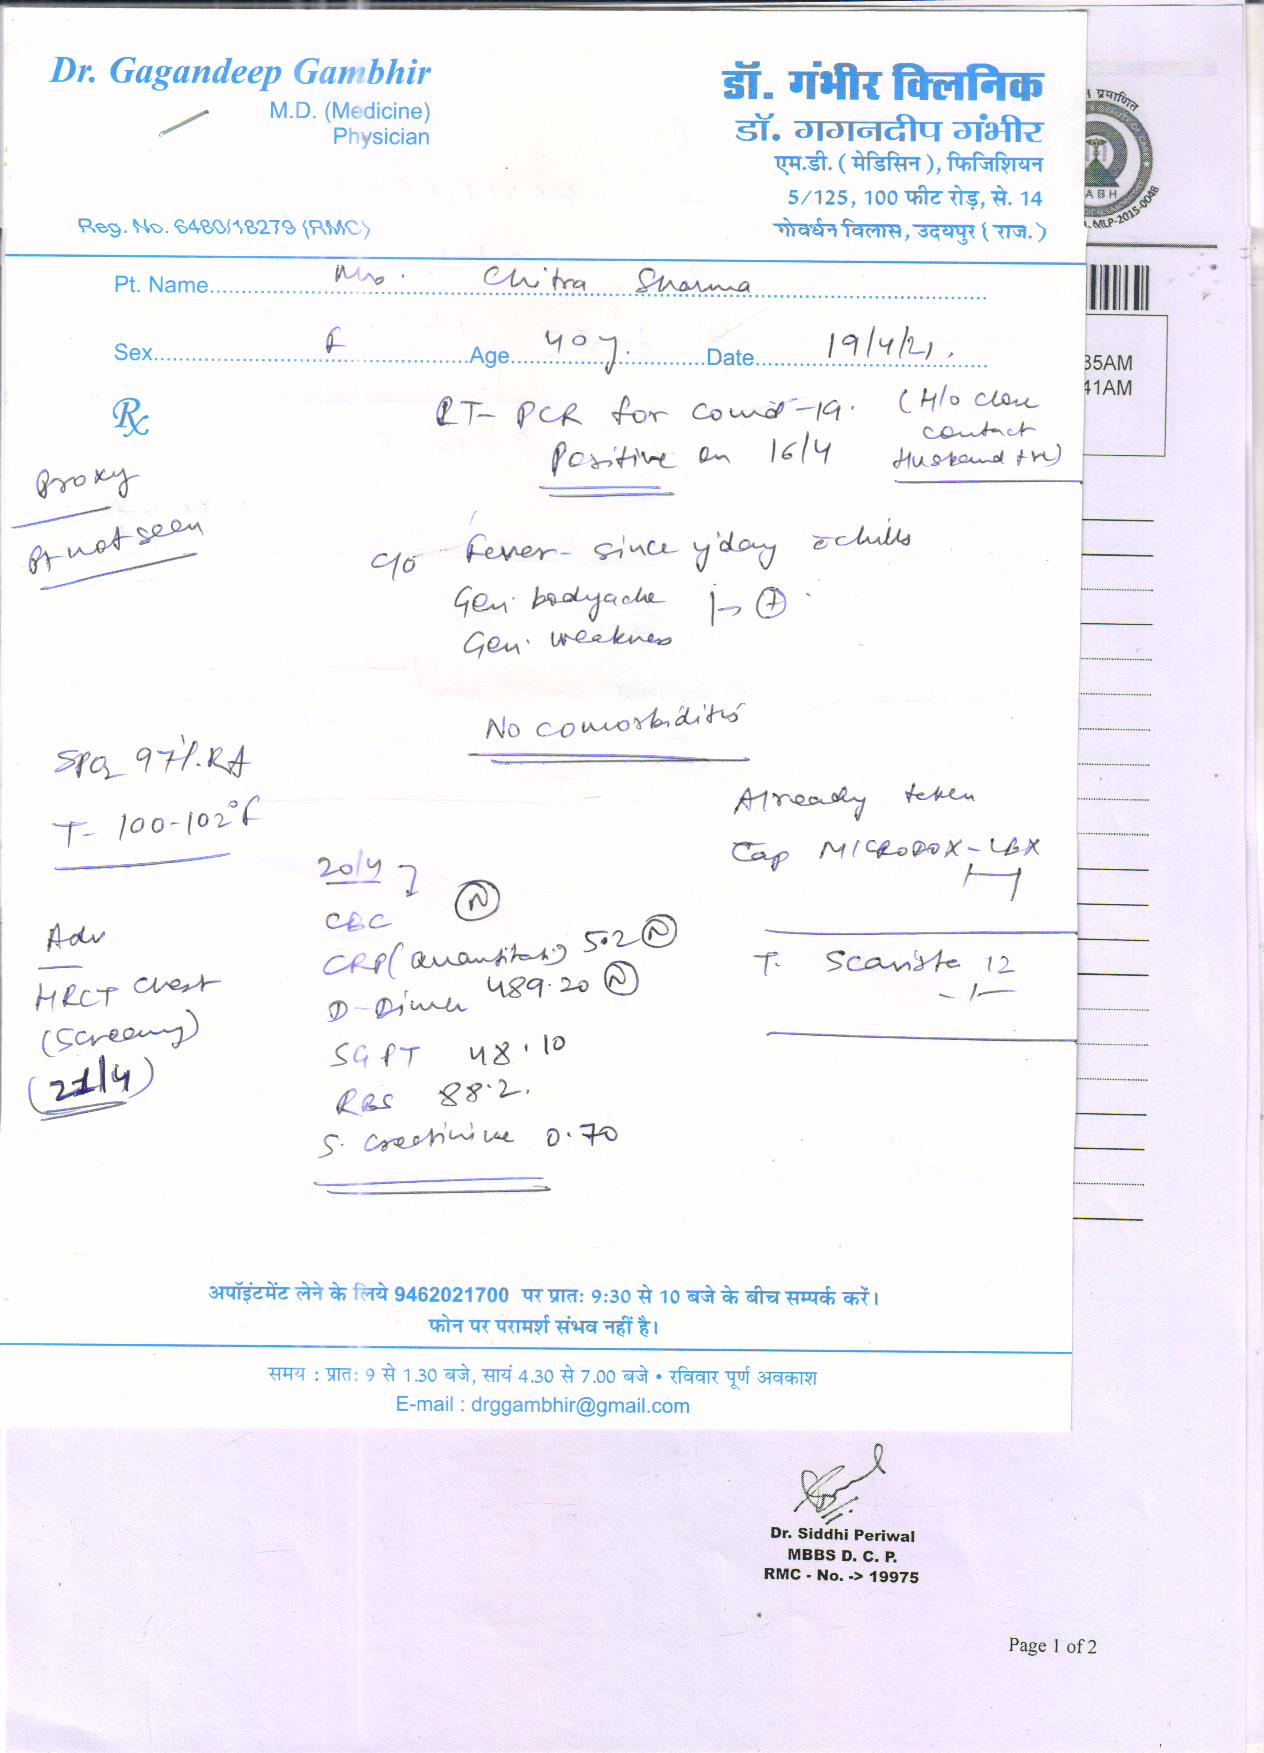 Dr. Gagandeep Gambhir
M.D. (Medicine)
Physician
Reg. No. 6480/18279 (RMC)
डॉ. गंभीर क्लिनिक
डॉ. गगनदीप गंभीर
एम.डी. ( मेडिसिन ), फिजिशियन
5/125, 100 फीट रोड़, से. 14
गोवर्धन विलास, उदयपुर ( राज. )
प्रमाणित
ABH
MLP-2015-0048
35AM
41AM
Pt. Name Mrs. Chitra Sharma
Sex F Age 40y. Date 19/4/21.
Rx
RT-PCR for Covid-19.
Positive on 16/4
(H/o close
contact
Husband +ve)
Proxy
Pt not seen
c/o Fever - since y'day c̄ chills
Gen. bodyache
Gen. weakness
+
No comorbidities
SPO2 97%.RA
T- 100-102°F
Already taken
Cap MICRODOX-LBX
T. Scavista 12
Adv
HRCT Chest
(Screening)
(21/4)
20/4
CBC N
CRP (Quantitative) 5.2 N
D-Dimer 489.20 N
SGPT 48.10
RBS 88.2.
S. Creatinine 0.70
अपॉइंटमेंट लेने के लिये 9462021700 पर प्रातः 9:30 से 10 बजे के बीच सम्पर्क करें।
फोन पर परामर्श संभव नहीं है।
समय : प्रातः 9 से 1.30 बजे, सायं 4.30 से 7.00 बजे • रविवार पूर्ण अवकाश
E-mail : drggambhir@gmail.com
Dr. Siddhi Periwal
MBBS D. C. P.
RMC - No. -> 19975
Page 1 of 2